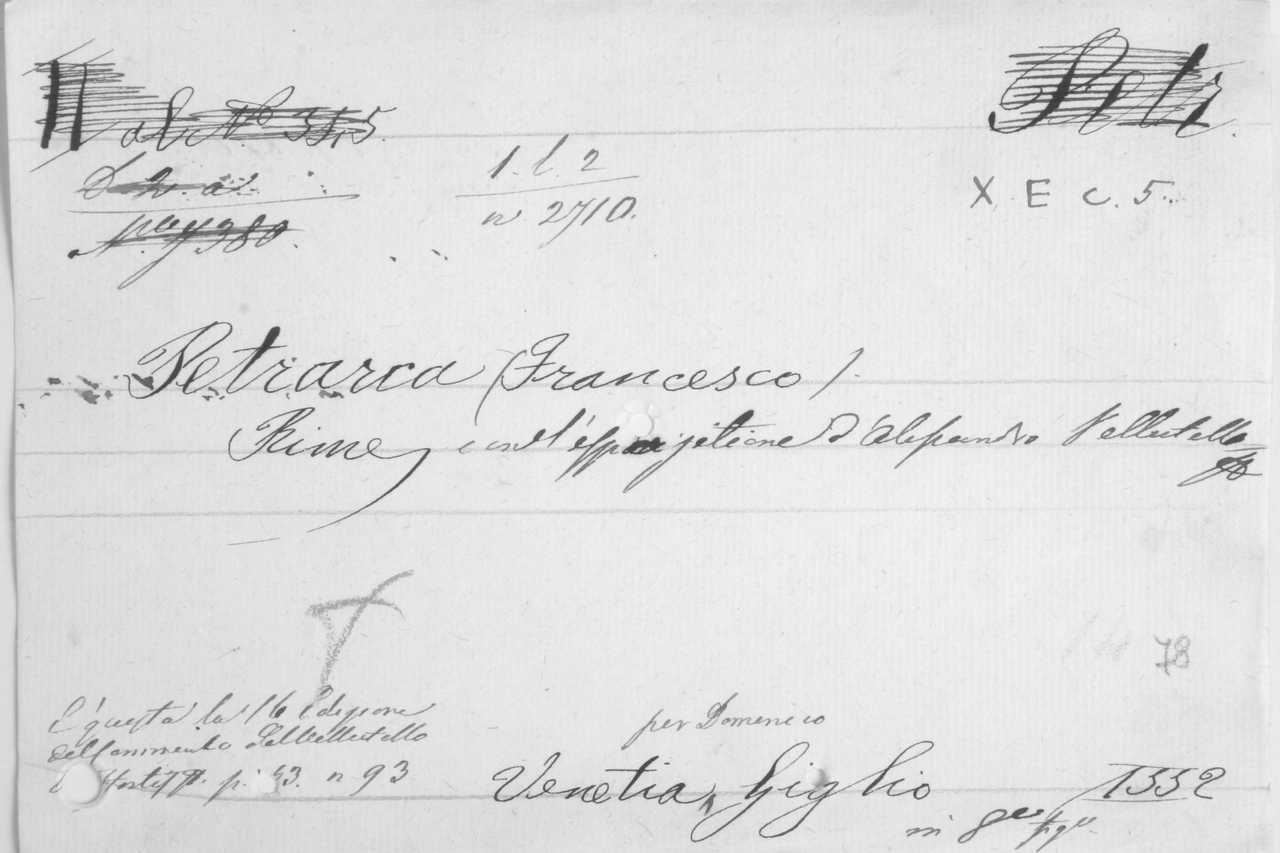 N° 345
1. l. 2
n 2710.
X E C. 5.
Petrarca (Francesco).
Rime, con l'esposizione d'Alessandro Vellutello
78
È questa la 16 Edizione
del Commento del Vellutello
p. 43. n 93
per Domenico
Venetia, Giglio 1552
in 8°° fig.